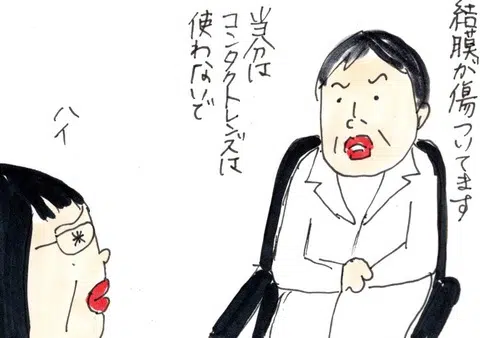 結膜が傷ついてます
当分は
コンタクトレンズは
使わないで
ハイ